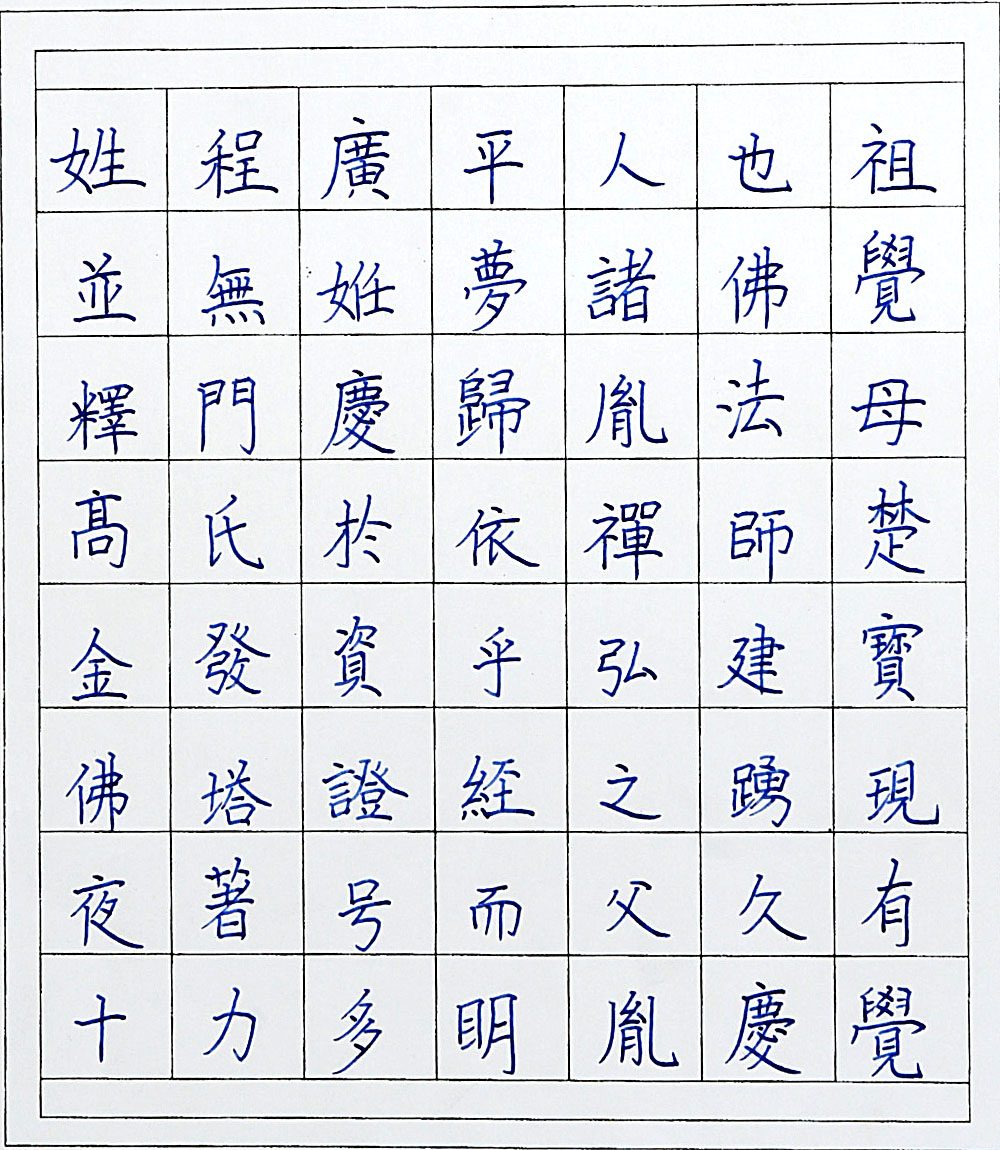 姓程廣平人也祖
並無姙夢諸佛覺
釋門慶歸胤法母
髙氏於依禪師楚
金發資乎弘建寶
佛塔證經之踴現
夜著号而父久有
十力多眀胤慶覺